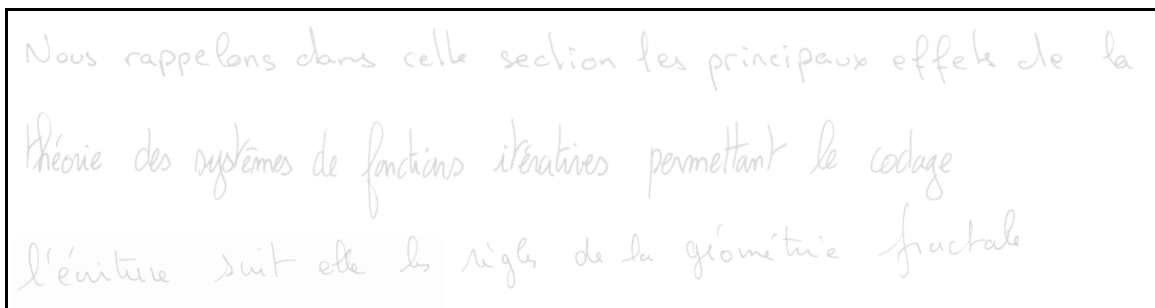 Nous rappelons dans cette section les principaux effets de la
théorie des systèmes de fonctions itératives permettant le codage
l'écriture suit elle les règles de la géométrie fractale